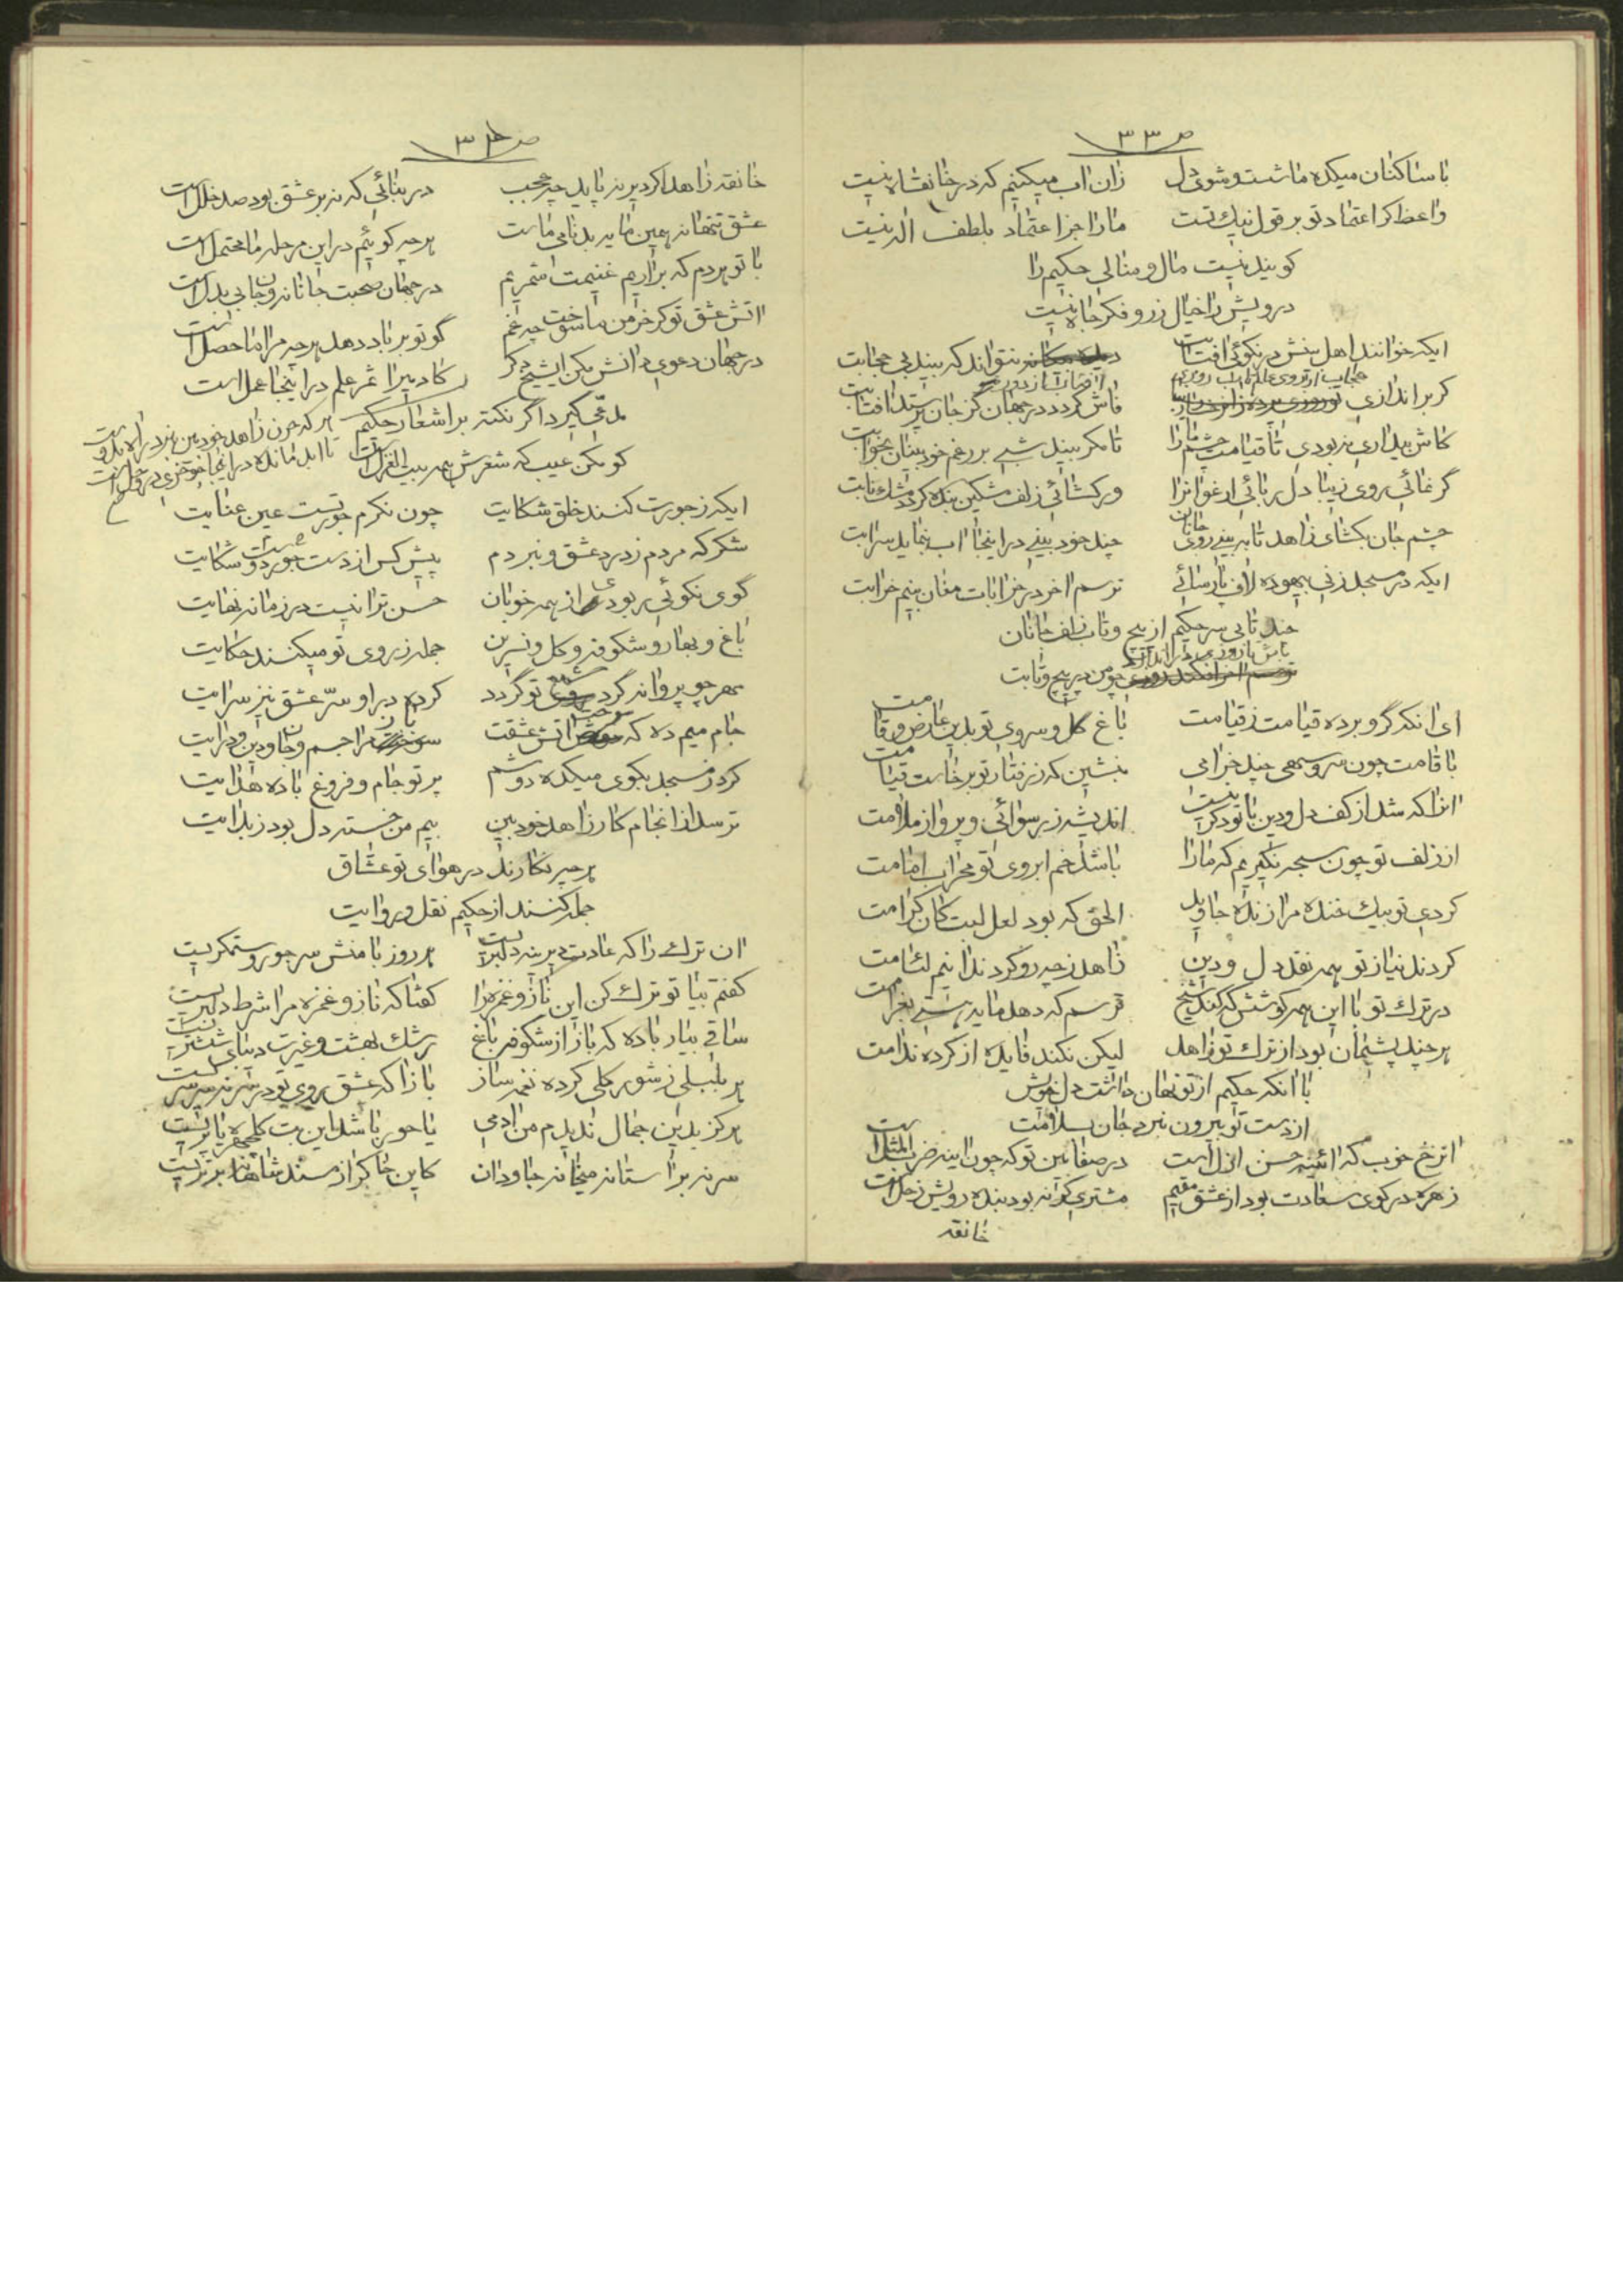 ص ٣٣
با ساکنان میکده ما شست و شوی دل زان اب میکنیم که در خانقاه نیست
واعظ کر اعتماد تو بر قول نیک تست مارا جز اعتماد بلطف اله نیست
کویند نیست مال و منالی حکیم را
درویش را خیال زر و فکر جاه نیست
ایکه خوانند اهل بینش در نکوئی افتابت نتواند که بیند بی حجابت
کر براندازی فاش کردد در جهان کز جان پرستد افتابت
کاش بیداری نبودی تا قیامت چشم مارا تا مکر بیند شبی بر رغم خود بینان بخوابت
گر نمائی روی زیبا دل ربائی ارغوانرا ور کشائی زلف مشکین بنده کردد مشک نابت
چشم جان بکشای زاهد تا به بینی روی جانان چند خود بینی در اینجا اب بنماید سرابت
ایکه در مسجد زنی بیهوده لاف پارسائی ترسم اخر در خرابات مغان بینم خرابت
چند تابی سر حکیم از پیچ و تاب زلف جانان
باش تا روزی در اندازد چو من در پیچ و تابت
ای انکه گرو برده قیامت ز قیامت باغ گل و سروی تو بدین عارض و قامت
با قامت چون سرو سهی چند خرامی بنشین که ز رفتار تو برخاست قیامت
انرا که شد از کف دل و دین با تو دکر نیست اندیشه ز رسوائی و پرواز ملامت
از زلف تو چون سبحه نکیریم که مارا باشد خم ابروی تو محراب امامت
کردی تو بیک خنده مرا زنده جاوید الحق که بود لعل لبت کان کرامت
کردند نیاز تو همه نقد دل و دین زاهد ز چه رو کرد ندانیم لئامت
در ترک تو با این همه کوشش که کند شیخ ترسم که دهد مایه هستی بغرامت
هر چند پشیمان بود از ترک تو زاهد لیکن نکند فایده از کرده ندامت
با انکه حکیم از تو نهان داشت دل خویش
از دست تو بیرون نبرد جان بسلامت
ان رخ خوب که ائینه حسن ازل است در صفا بین تو که چون اینه ضرب المثل است
زهره در کوی سعادت بود از عشق مقیم مشتری کر نه بود بنده درویش زحل است
خانقه
ص ٣٤
خانقه زاهد اکر دیر نه پاید چه عجب در بنائی که نه بر عشق بود صد خلل است
عشق تنها نه همین مایه بدنامی ماست هر چه کوئیم در این مرحله ما محتمل است
با تو هر دم که براریم غنیمت شمریم در جهان صحبت جانانه و جان بی بدل است
اتش عشق تو کر خرمن ما سوخت چه غم گو تو بر باد دهد هر چه مرا ماحصل است
در جهان دعوی دانش مکن ایشیخ دکر کادمیرا ثمر علم در اینجا عمل است
مدعی کیرد اگر نکته بر اشعار حکیم
کو مکن عیب که شعرش همه بیت الغزل است
هر که چون زاهد خود بین
تا ابد مانده در اینجا چو خری در وحل است
ایکه ز جورت کنند خلق شکایت چون نکرم جور تست عین عنایت
شکر که مردم ز درد عشق و نبردم پیش کس از دست جور دوست شکایت
گوی نکوئی ربودی از همه خوبان حسن ترا نیست در زمانه نهایت
باغ و بهار و شکوفه و کل و نسرین جمله ز روی تو میکنند حکایت
مهر چو پروانه گرد شمع تو گردد کرده در او سرّ عشق نیز سرایت
جام میم ده که اتش عشقت مرا جسم و جان و دین و درایت
کرد ز مسجد بکوی میکده دوشم پرتو جام و فروغ باده هدایت
ترسد از انجام کار زاهد خود بین بیم من خسته دل بود ز بدایت
هر چه نکارند در هوای تو عشّاق
جمله کنند از حکیم نقل و روایت
ان ترک را که عادت دیرینه دلبریست هر روز با منش سر جور و ستمکریست
کفتم بیا تو ترک کن این ناز و غمزه را کفتا که ناز و غمزه مرا شرط دلبریست
ساقی بیار باده که باز از شکوفه باغ رشک بهشت و غیرت دیبای ششتریست
هر بلبلی ز شور کلی کرده نغمه ساز
هرکز بدین جمال ندیدم من ادمی یا حور باشد این بت کلچهره یا پریست
سر نه بر استانه میخانه جاودان کاین خاک را ز مسند شاهانه برتریست